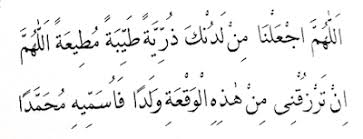 اَللّٰهُمَّ اجْعَلْنَا مِنْ لَدُنْكَ ذُرِّيَّةً طَيِّبَةً مُطِيعَةً اَللّٰهُمَّ
اِنْ تَرْزُقْنِى مِنْ هٰذِهِ الْوَقْعَةِ وَلَدًا فَاُسَمِّيهِ مُحَمَّدًا